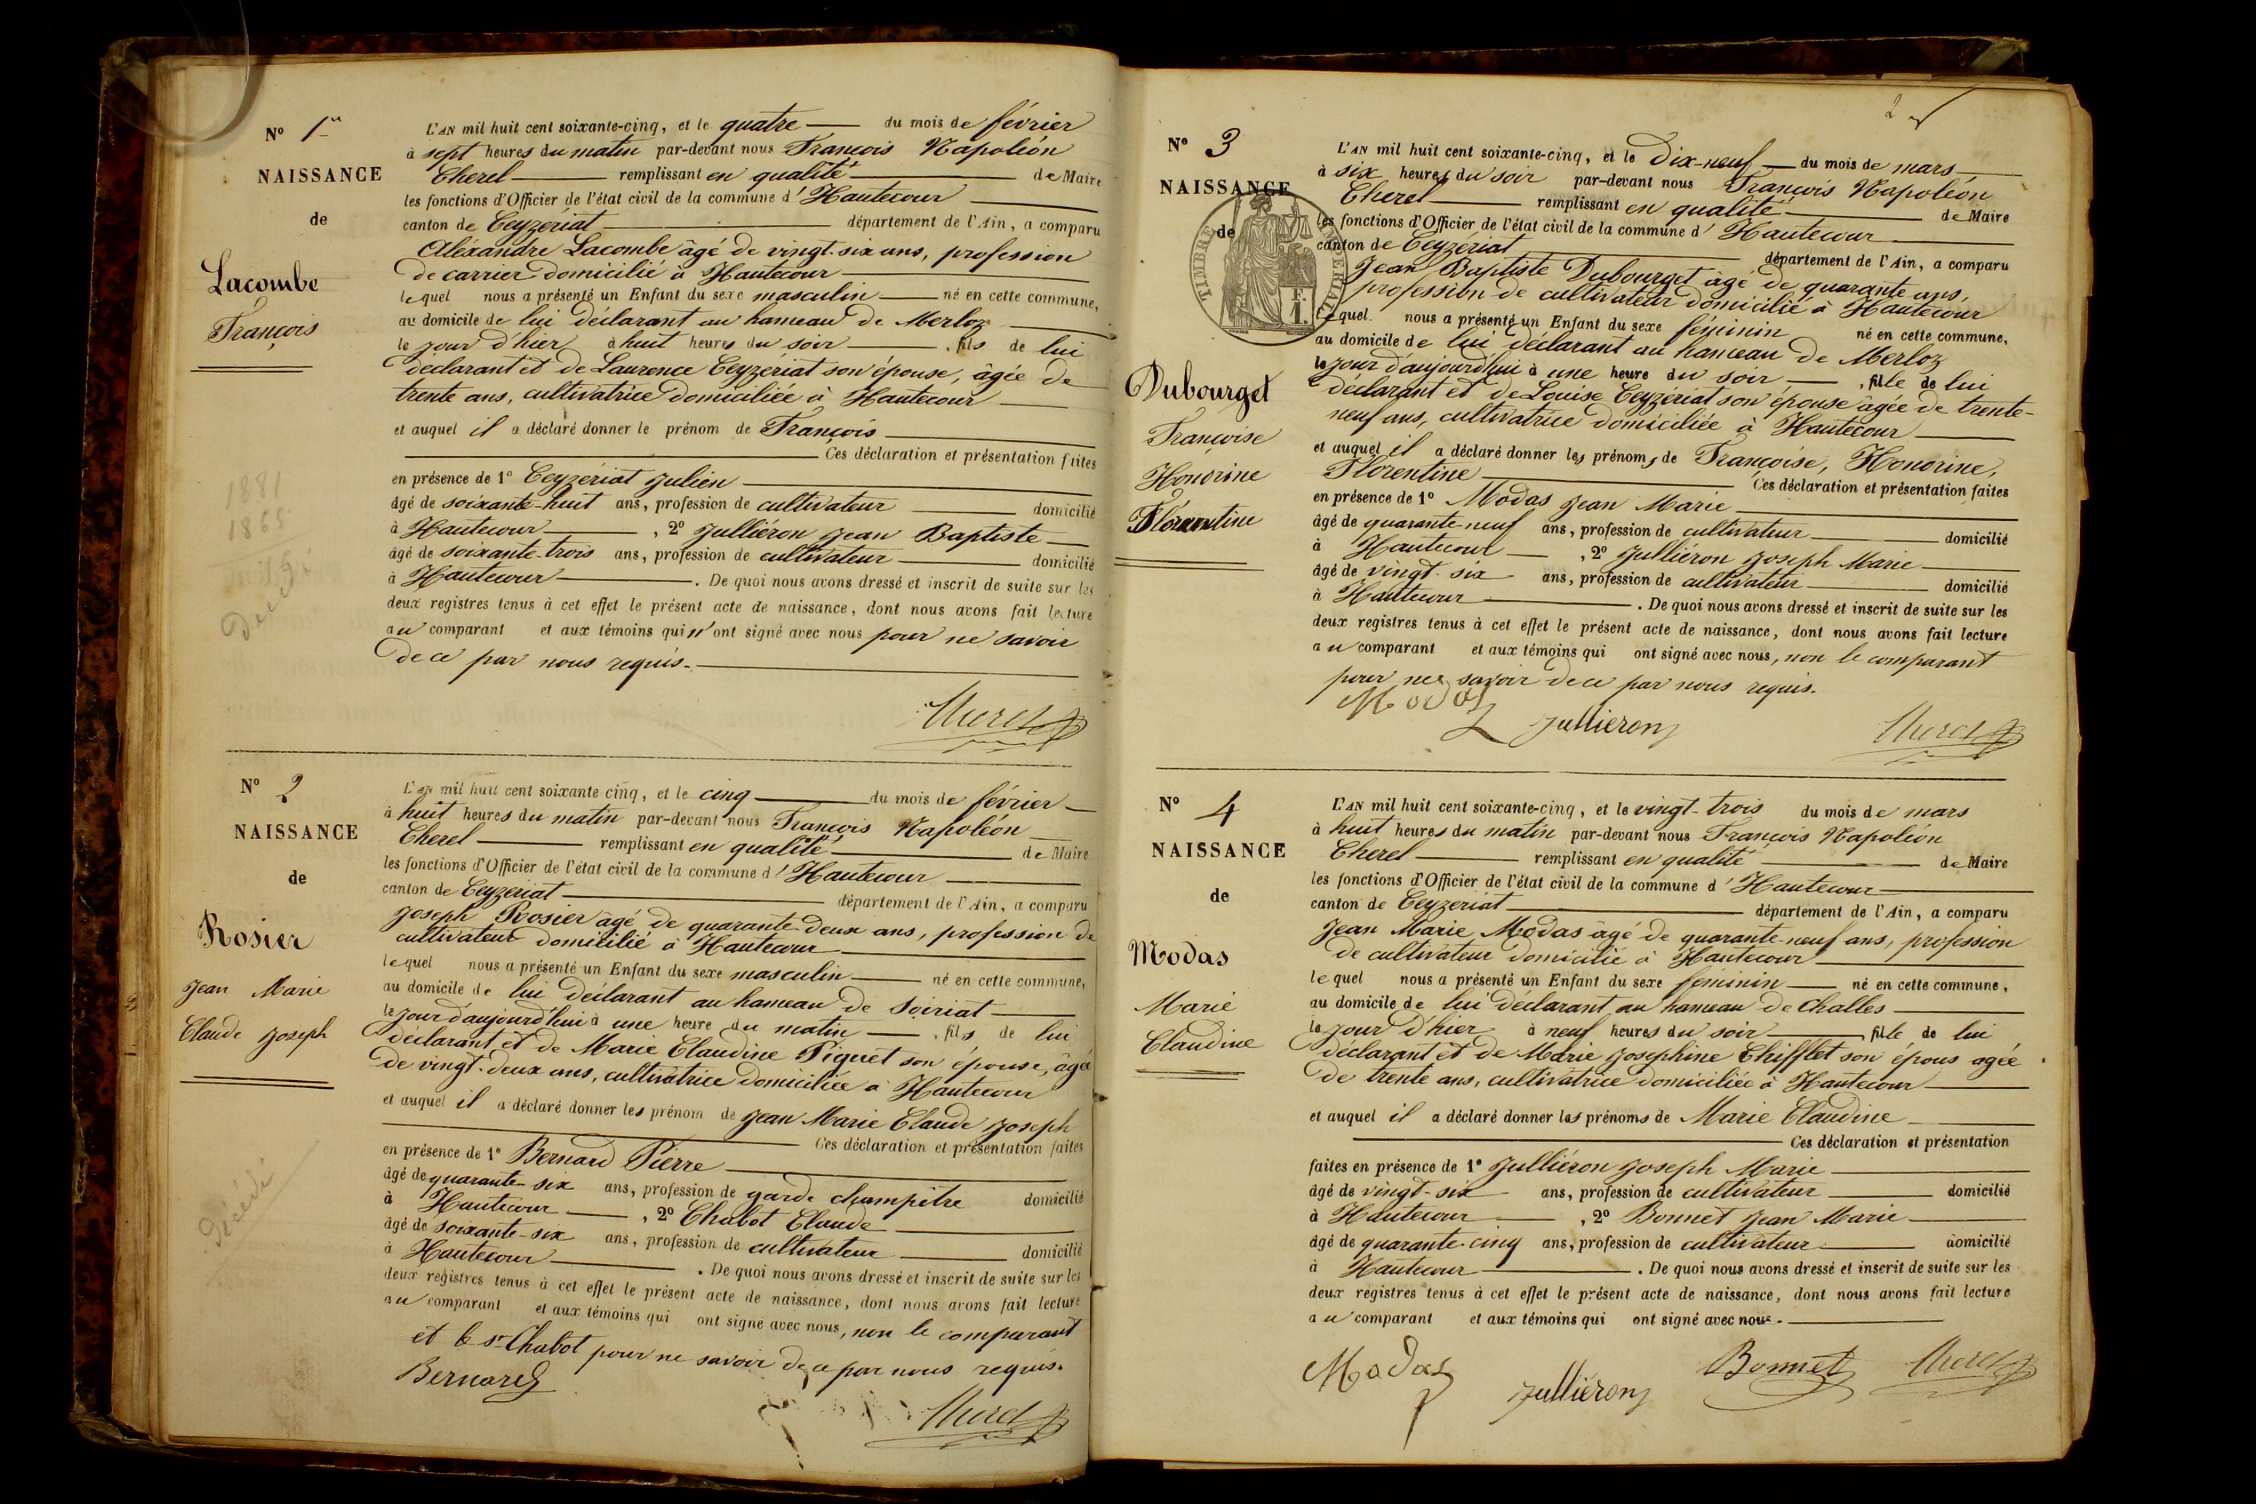 N° 1er
NAISSANCE
de
Lacombe
François
L'AN mil huit cent soixante-cinq, et le quatre du mois de février
à sept heures du matin par-devant nous François Napoléon
Cherel remplissant en qualité de Maire
les fonctions d'Officier de l'état civil de la commune d'Hautecour
canton de Ceyzériat département de l'Ain, a comparu
Aléxandre Lacombe âgé de vingt-six ans, profession
de carrier domicilié à Hautecour
lequel nous a présenté un Enfant du sexe masculin né en cette commune,
au domicile de lui déclarant au hameau de Merloz
le jour d'hier à huit heures du soir, fils de lui
déclarant et de Laurence Ceyzériat son épouse, âgée de
trente ans, cultivatrice domiciliée à Hautecour
et auquel il a déclaré donner le prénom de François
Ces déclaration et présentation faites
en présence de 1° Ceyzériat Julien
âgé de soixante-huit ans, profession de cultivateur domicilié
à Hautecour, 2° Julliéron Jean Baptiste
âgé de soixante-trois ans, profession de cultivateur domicilié
à Hautecour. De quoi nous avons dressé et inscrit de suite sur les
deux registres tenus à cet effet le présent acte de naissance, dont nous avons fait lecture
au comparant et aux témoins qui n'ont signé avec nous pour ne savoir
de ce par nous requis.
Cherel
1881
1865
Décédé
N° 2
NAISSANCE
de
Rosier
Jean Marie
Claude Joseph
L'AN mil huit cent soixante cinq, et le cinq du mois de février
à huit heures du matin par-devant nous François Napoléon
Cherel remplissant en qualité de Maire
les fonctions d'Officier de l'état civil de la commune d'Hautecour
canton de Ceyzeriat département de l'Ain, a comparu
Joseph Rosier âgé de quarante-deux ans, profession de
cultivateur domicilié à Hautecour
lequel nous a présenté un Enfant du sexe masculin né en cette commune,
au domicile de lui déclarant au hameau de Soiriat
le jour d'aujourd'hui à une heure du matin, fils de lui
déclarant et de Marie Claudine Piquet son épouse, âgée
de vingt-deux ans, cultivatrice domiciliée à Hautecour
et auquel il a déclaré donner les prénom de Jean Marie Claude Joseph
Ces déclaration et présentation faites
en présence de 1° Bernard Pierre
âgé de quarante-six ans, profession de garde champêtre domicilié
à Hautecour, 2° Chabot Claude
âgé de soixante-six ans, profession de cultivateur domicilié
à Hautecour. De quoi nous avons dressé et inscrit de suite sur les
deux registres tenus à cet effet le présent acte de naissance, dont nous avons fait lecture
au comparant et aux témoins qui ont signé avec nous, non le comparant
et le sr Chabot pour ne savoir de ce par nous requis.
Bernard
Cherel
Décédé
2
N° 3
NAISSANCE
de
TIMBRE IMPERIAL
F.
1.
Dubourget
Françoise
Honorine
Florentine
L'AN mil huit cent soixante-cinq, et le Dix-neuf du mois de mars
à six heures du soir par-devant nous François Napoléon
Cherel remplissant en qualité de Maire
les fonctions d'Officier de l'état civil de la commune d'Hautecour
canton de Ceyzériat département de l'Ain, a comparu
Jean Baptiste Dubourget âgé de quarante ans,
profession de cultivateur domicilié à Hautecour
lequel nous a présenté un Enfant du sexe féminin né en cette commune,
au domicile de lui déclarant au hameau de Merloz
le jour d'aujourd'hui à une heure du soir, fille de lui
déclarant et de Louise Ceyzériat son épouse âgée de trente-
neuf ans, cultivatrice domiciliée à Hautecour
et auquel il a déclaré donner les prénoms de Françoise, Honorine,
Florentine Ces déclaration et présentation faites
en présence de 1° Modas Jean Marie
âgé de quarante-neuf ans, profession de cultivateur domicilié
à Hautecour, 2° Julliéron Joseph Marie
âgé de vingt-six ans, profession de cultivateur domicilié
à Hautecour. De quoi nous avons dressé et inscrit de suite sur les
deux registres tenus à cet effet le présent acte de naissance, dont nous avons fait lecture
au comparant et aux témoins qui ont signé avec nous, non le comparant
pour ne savoir de ce par nous requis.
Modas Julliéron Cherel
N° 4
NAISSANCE
de
Modas
Marie
Claudine
L'AN mil huit cent soixante-cinq, et le vingt-trois du mois de mars
à huit heures du matin par-devant nous François Napoléon
Cherel remplissant en qualité de Maire
les fonctions d'Officier de l'état civil de la commune d'Hautecour
canton de Ceyzeriat département de l'Ain, a comparu
Jean Marie Modas âgé de quarante-neuf ans, profession
de cultivateur domicilié à Hautecour
lequel nous a présenté un Enfant du sexe féminin né en cette commune,
au domicile de lui déclarant au hameau de Challes
le jour d'hier à neuf heures du soir, fille de lui
déclarant et de Marie Josephine Chifflet son épous agée
de trente ans, cultivatrice domiciliée à Hautecour
et auquel il a déclaré donner les prénoms de Marie Claudine
Ces déclaration et présentation
faites en présence de 1° Julliéron Joseph Marie
âgé de vingt-six ans, profession de cultivateur domicilié
à Hautecour, 2° Bonnet Jean Marie
âgé de quarante-cinq ans, profession de cultivateur domicilié
à Hautecour. De quoi nous avons dressé et inscrit de suite sur les
deux registres tenus à cet effet le présent acte de naissance, dont nous avons fait lecture
au comparant et aux témoins qui ont signé avec nous.
Modas Julliéron Bonnet Cherel